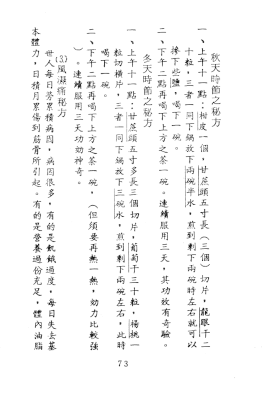 秋天時節之秘方
一、上午十一點：柑皮一個，甘蔗頭五寸長（三個）切片，龍眼干二
十粒，三者一同下鍋放下兩碗半水，煎到剩下兩碗時左右就可以
掺下些鹽，喝下一碗。
二、下午二點再喝下上方之茶一碗。連續服用三天，其功效有奇驗。
冬天時節之秘方
一、上午十一點：甘蔗頭五寸多長三個切片，葡萄干三十粒，楊桃一
粒切橫片，三者一同下鍋放下三碗水，煎到剩下兩碗左右，此時
喝下一碗。
二、下午二點再喝下上方之茶一碗，（但須要再熱一熱，効力比較強
）。連續服用三天功効神奇。
(3)風濕痛秘方
世人每日勞累積病因，病因很多，有的是飢餓過度，每日失去基
本體力，日積月累傷到筋骨所引起。有的是營養過份充足，體內油脂
73